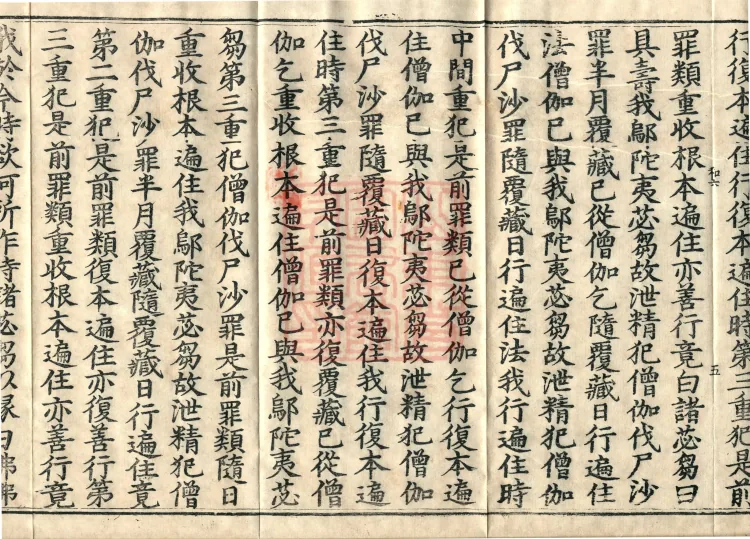 行復本遍住行復本遍住時第三重犯是前
罪類重收根本遍住亦善行竟白諸苾芻曰
和六
五
具壽我鄔陀夷苾芻故泄精犯僧伽伐尸沙
罪半月覆藏已從僧伽乞隨覆藏日行遍住
法僧伽已與我鄔陀夷苾芻故泄精犯僧伽
伐尸沙罪隨覆藏日行遍住法我行遍住時
中間重犯是前罪類已從僧伽乞行復本遍
住僧伽已與我鄔陀夷苾芻故泄精犯僧伽
伐尸沙罪隨覆藏日復本遍住我行復本遍
住時第三重犯是前罪類亦復覆藏已從僧
伽乞重收根本遍住僧伽已與我鄔陀夷苾
芻第三重犯僧伽伐尸沙罪是前罪類隨日
重收根本遍住我鄔陀夷苾芻故泄精犯僧
伽伐尸沙罪半月覆藏隨覆藏日行遍住竟
第二重犯是前罪類復本遍住亦復善行第
三重犯是前罪類重收根本遍住亦善行竟
我於今時欲何所作時諸苾芻以緣白佛佛